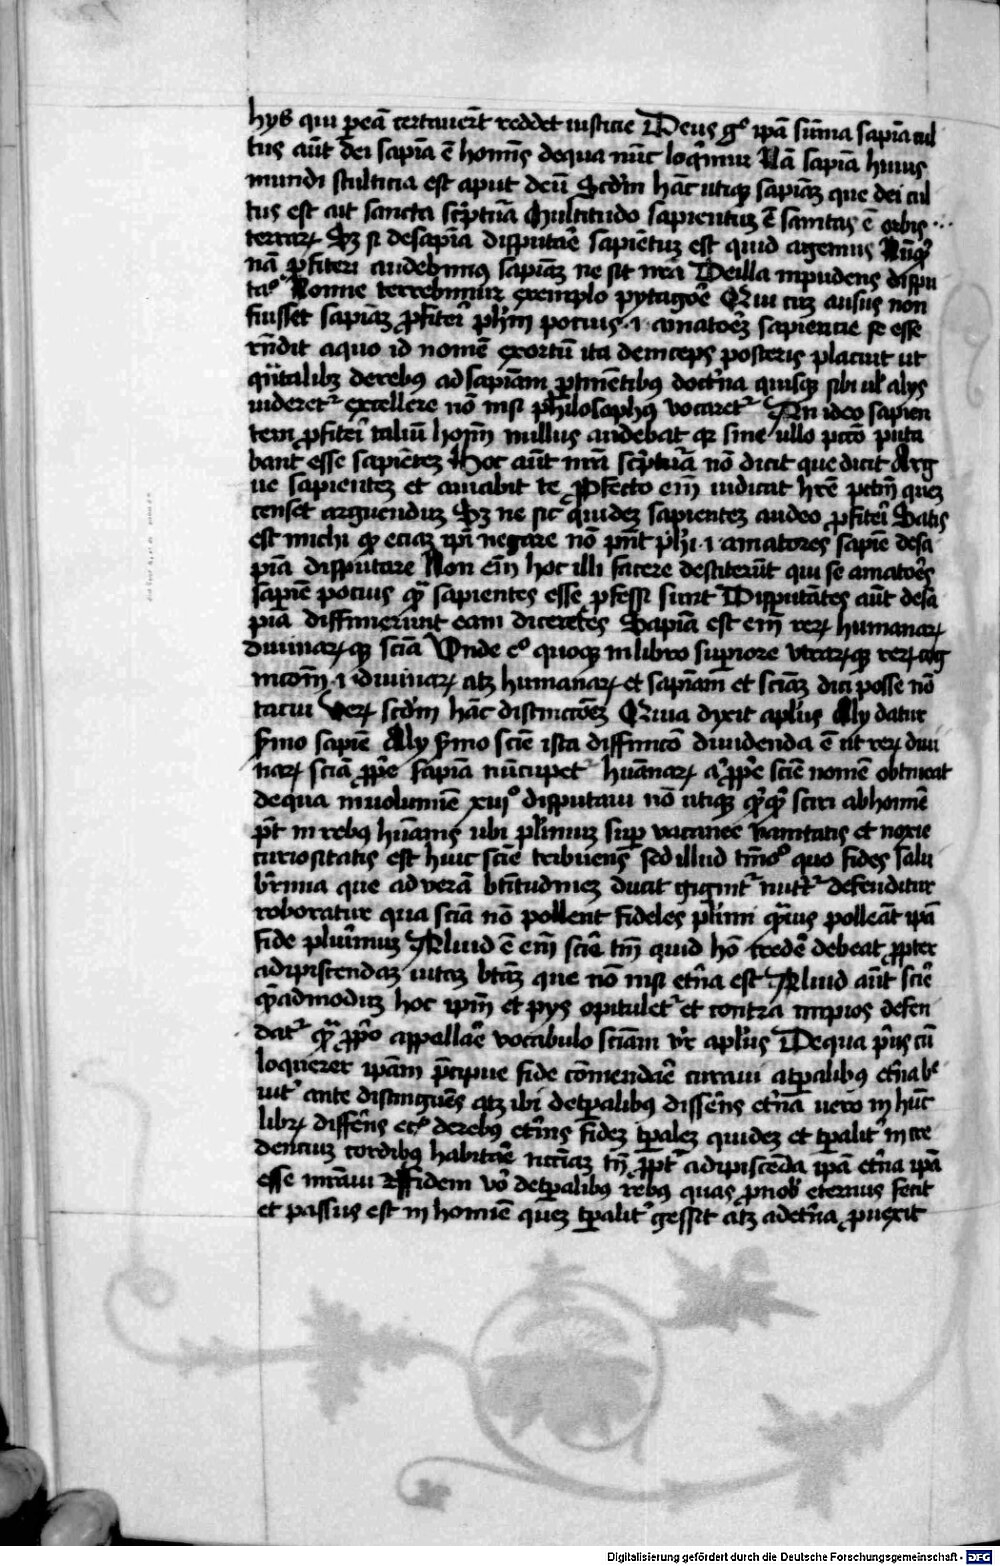 hys qui p eā certauerūt reddet iusticie Deus gͦ ipā sūma sapiā cul
tus aūt dei sapiā ē homīs de qua nūc loq̄mur Nā sapiā huius
mundi stulticia est aput deū Scd̄m hāc utiqꝫ sapiāꝫ que dei cul
tus est ait sancta sc̄ptūa Multitudo sapientuꝫ ē sanitas ē orbis
terrarꝝ Sꝫ si de sapīa disputaē sapiētuꝫ est quid agemus Nūqͥ
nā ꝓfiteri audebimꝰ sapiāꝫ ne sit nr̄a de illa inpudens dispu
taͦ Nonne terrebimur exemplo pytagoē Qui cuꝫ ausus non
fuisset sapiāꝫ ꝓfiteri ph̄m pocius ·i· amatoēꝫ sapiencie se esse
rn̄dit a quo id nomē exortū ita deinceps posteris placuit ut
qͣntalibꝫ de rebꝰ ad sapiam ꝑtinētibꝰ doct̄na quisqꝫ sibi uł alys
uideretᷣ excellere nō nisi philosophꝰ vocaretᷣ An ideo sapien
tem ꝓfiteri taliū hom̄ nullus audebat qꝛ sine ullo pctō puta
bant esse sapiēteꝫ Hoc aūt nr̄a sc̄ptūa nō dicit que dicit Arg
ue sapienteꝫ et amabit te Ꝓfecto em̄ iudicat hr̄e pctm̄ queꝫ
censet arguenduꝫ Sꝫ ne sic quideꝫ sapienteꝫ audeo ꝓfiteri Satis
est michi qꝫ eciaꝫ ip̄i negare nō pn̄t ph̄i ·i· amatores sapiē de sa
piā disputare Non em̄ hoc illi facere destiterūt qui se amatoēs
sapiē pocius qͣ sapientes esse ꝓfessi sunt Disputātes aūt de sa
piā diffinierunt eam dicentes Sapiā est em̄ rerꝝ humanarꝝ
diuinarꝝqꝫ sciā Vnde eͦ quoqꝫ in libro supiore vtrarꝝqꝫ rerꝝ cog
nicōm̄ ·i· diuinarꝝ atꝫ humanarꝝ et sapiam et sciāꝫ dici posse nō
tacui Verꝝ scd̄m hāc distinctōeꝫ Qua dyxit apl̄us Aly datur
ẜmo sapiē Aly ẜmo sciē ista diffinicō diuidenda ē ut rerꝝ diui
narꝝ sciā ꝓpe sapiā nūcupetᷣ hūanarꝝ aͧ ꝓpe sciē nomē obtineat
de qua in uolumīe xiijͦ disputaui nō utiqꝫ qͥqͥ sciri ab homīe
pt̄ in rebꝰ hūanis ubi pl̄imuꝫ suꝑ vacanee vanitatis et noxie
curiositatis est huic sciē tribuens sed illud tm̄oͦ quo fides salu
br̄rima que ad verā bt̄itudineꝫ ducit gignitᷣ nutᷣtᷣ defenditur
roboratur qua sciā nō pollent fideles pl̄imi qͣuis polleāt ipā
fide pluīmuꝫ Aliud ē em̄ sciē tm̄ quid hō credē debeat ꝓpter
adipiscendaꝫ uitaꝫ bt̄aꝫ que nō nisi et̄na est Aliud aūt sciē
qͣadmoduꝫ hoc ipm̄ et pys opituletᷣ et contra impios defen
datᷣ qͣ ꝓpͦ appellaē vocabulo sciam vr̄ apl̄us De qua pͥus cū
loquerer ipam p̄cipue fidē cōmendaē curaui a tp̄alibꝰ et̄na bͤ
uitᷣ ante distinguēs atꝫ ibi de tp̄alibꝰ disserēs et̄na uero in hūc
librꝝ differēs ecͣ de rebꝰ et̄nis fideꝫ tp̄aleꝫ quideꝫ et tp̄alitᷣ in cre
denciuꝫ cordibꝰ habitaē nccīaꝫ tn̄ ꝓptᷣ adipiscēda ipā et̄na ipā
esse mr̄aui Fidem vͦ de tp̄alibꝰ rebꝰ quas ꝓ nob̄ eternus fecit
et passus est in homīe queꝫ tp̄alitᷣ gessit atꝫ ad et̄na ꝓuexit
Digitalisierung gefördert durch die Deutsche Forschungsgemeinschaft - DFG